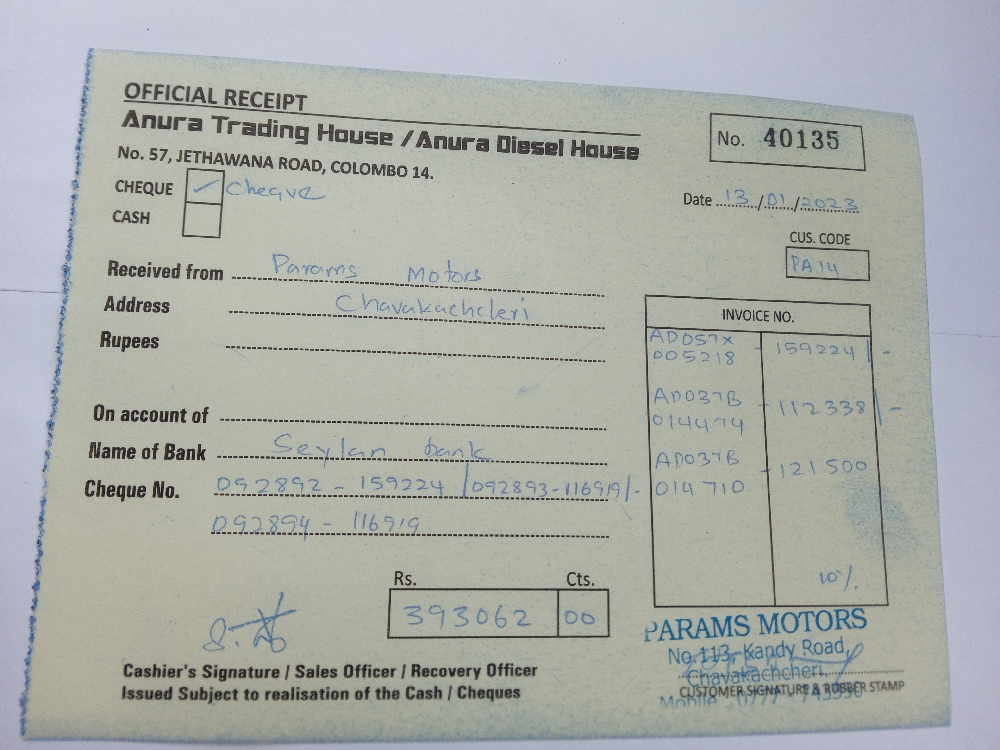 OFFICIAL RECEIPT
Anura Trading House / Anura Diesel House
No. 57, JETHAWANA ROAD, COLOMBO 14.
No. 40135
CHEQUE ✓ Cheque
CASH
Date 13/01/2023
CUS. CODE
PA14
Received from Params Motors
Address Chavakachcleri
Rupees
On account of
Name of Bank Seylan bank
Cheque No. 092892 - 159224 / 092893-116919/-
092894 - 116919
INVOICE NO.
AD057X
005218 - 159224/-
AD037B
014474 - 112338/-
AD037B
014710 - 121500
10%
Rs. Cts.
393062 00
Cashier's Signature / Sales Officer / Recovery Officer
Issued Subject to realisation of the Cash / Cheques
PARAMS MOTORS
No.113, Kandy Road,
Chavakachcheri.
CUSTOMER SIGNATURE & RUBBER STAMP
Mobile : 0777 -